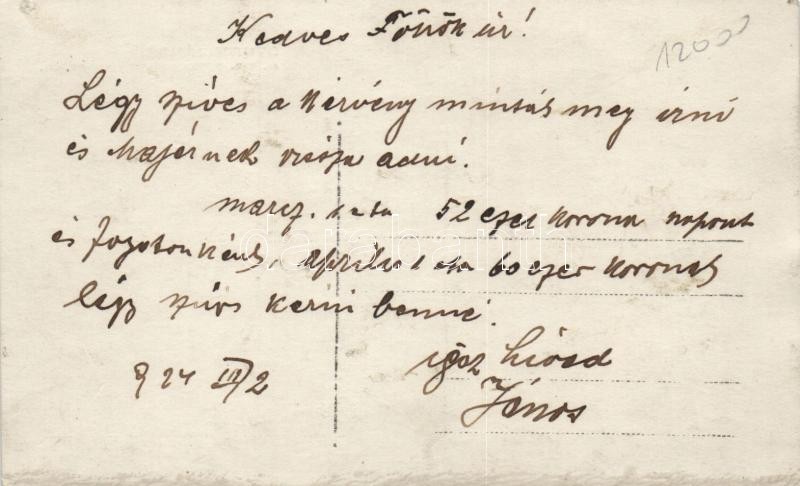 Kedves Török úr!
12000
Légy szíves a kérvény mintás meg irni
és Majernek vissza adni.
marcz. 1 én 52 ezer korona napont
és fogaton ként, április 1 én 60 ezer koronát
légy szives kérni benne.
924 III/2 igaz híved
János